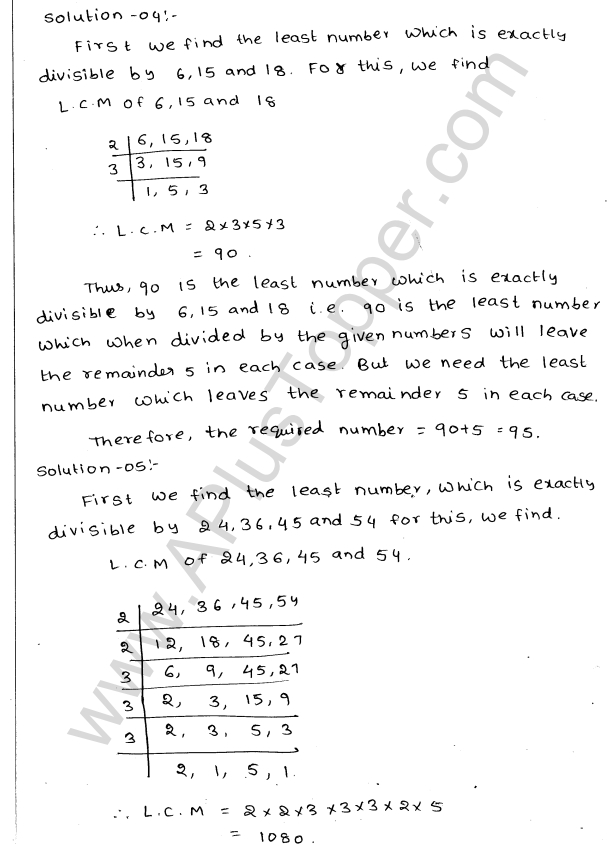 Solution -04:-
First we find the least number which is exactly
divisible by 6,15 and 18. For this, we find
L.C.M of 6,15 and 18
2 | 6, 15, 18
3 | 3, 15, 9
| 1, 5, 3
∴ L.C.M = 2×3×5×3
= 90.
Thus, 90 is the least number which is exactly
divisible by 6,15 and 18 i.e. 90 is the least number
which when divided by the given numbers will leave
the remainder 5 in each case. But we need the least
number which leaves the remainder 5 in each case.
Therefore, the required number = 90+5 = 95.
Solution -05:-
First we find the least number, which is exactly
divisible by 24,36,45 and 54 for this, we find.
L.C.M of 24,36,45 and 54.
2 | 24, 36, 45, 54
2 | 12, 18, 45, 27
3 | 6, 9, 45, 27
3 | 2, 3, 15, 9
3 | 2, 3, 5, 3
| 2, 1, 5, 1.
∴ L.C.M = 2×2×3×3×3×2×5
= 1080.
www.APlusTopper.com